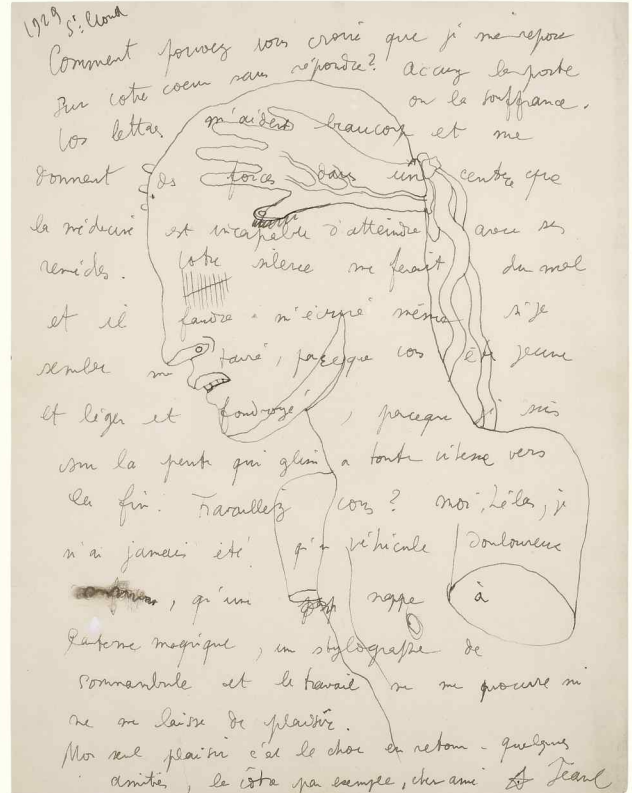 1929 St. Cloud
Comment pouvez vous croire que je me repose
sur votre coeur sans répondre? Accusez la poste
ou la souffrance.
Vos lettres m'aident beaucoup et me
donnent des forces dans un centre que
la médecine est incapable d'atteindre avec ses
remèdes. Votre silence me ferait du mal
et il faudra m'écrire même si je
semble me taire, parceque vous êtes jeune
et léger et foudroyé, parceque je suis
sur la pente qui glisse à toute vitesse vers
la fin. Travaillez vous? moi, hélas, je
n'ai jamais été qu'un véhicule douloureux
, qu'une nappe à
lanterne magique, un stylographe de
somnambule et le travail ne me procure ni
ne me laisse de plaisir.
Mon seul plaisir c'est le choc en retour - quelques
amitiés, la vôtre par exemple, cher ami Jean